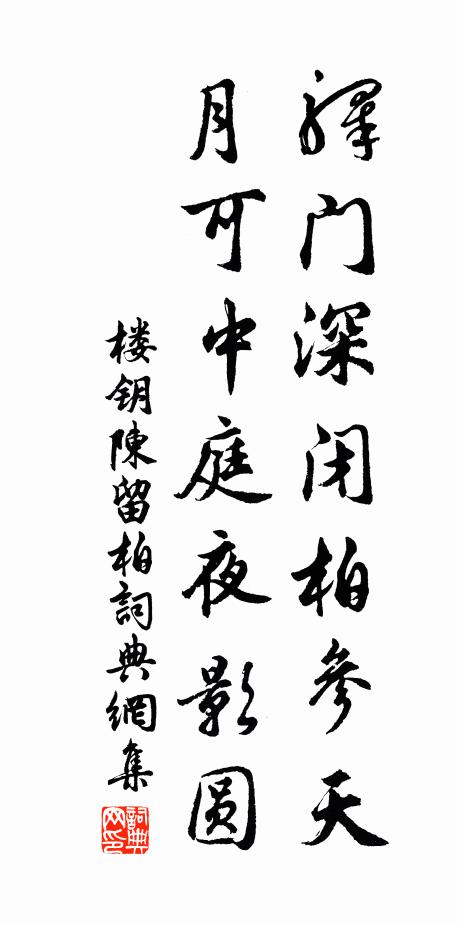 驛门深闭柏參天
月可中庭夜影圆
楼钥陳留柏詞典網集
詞典网印